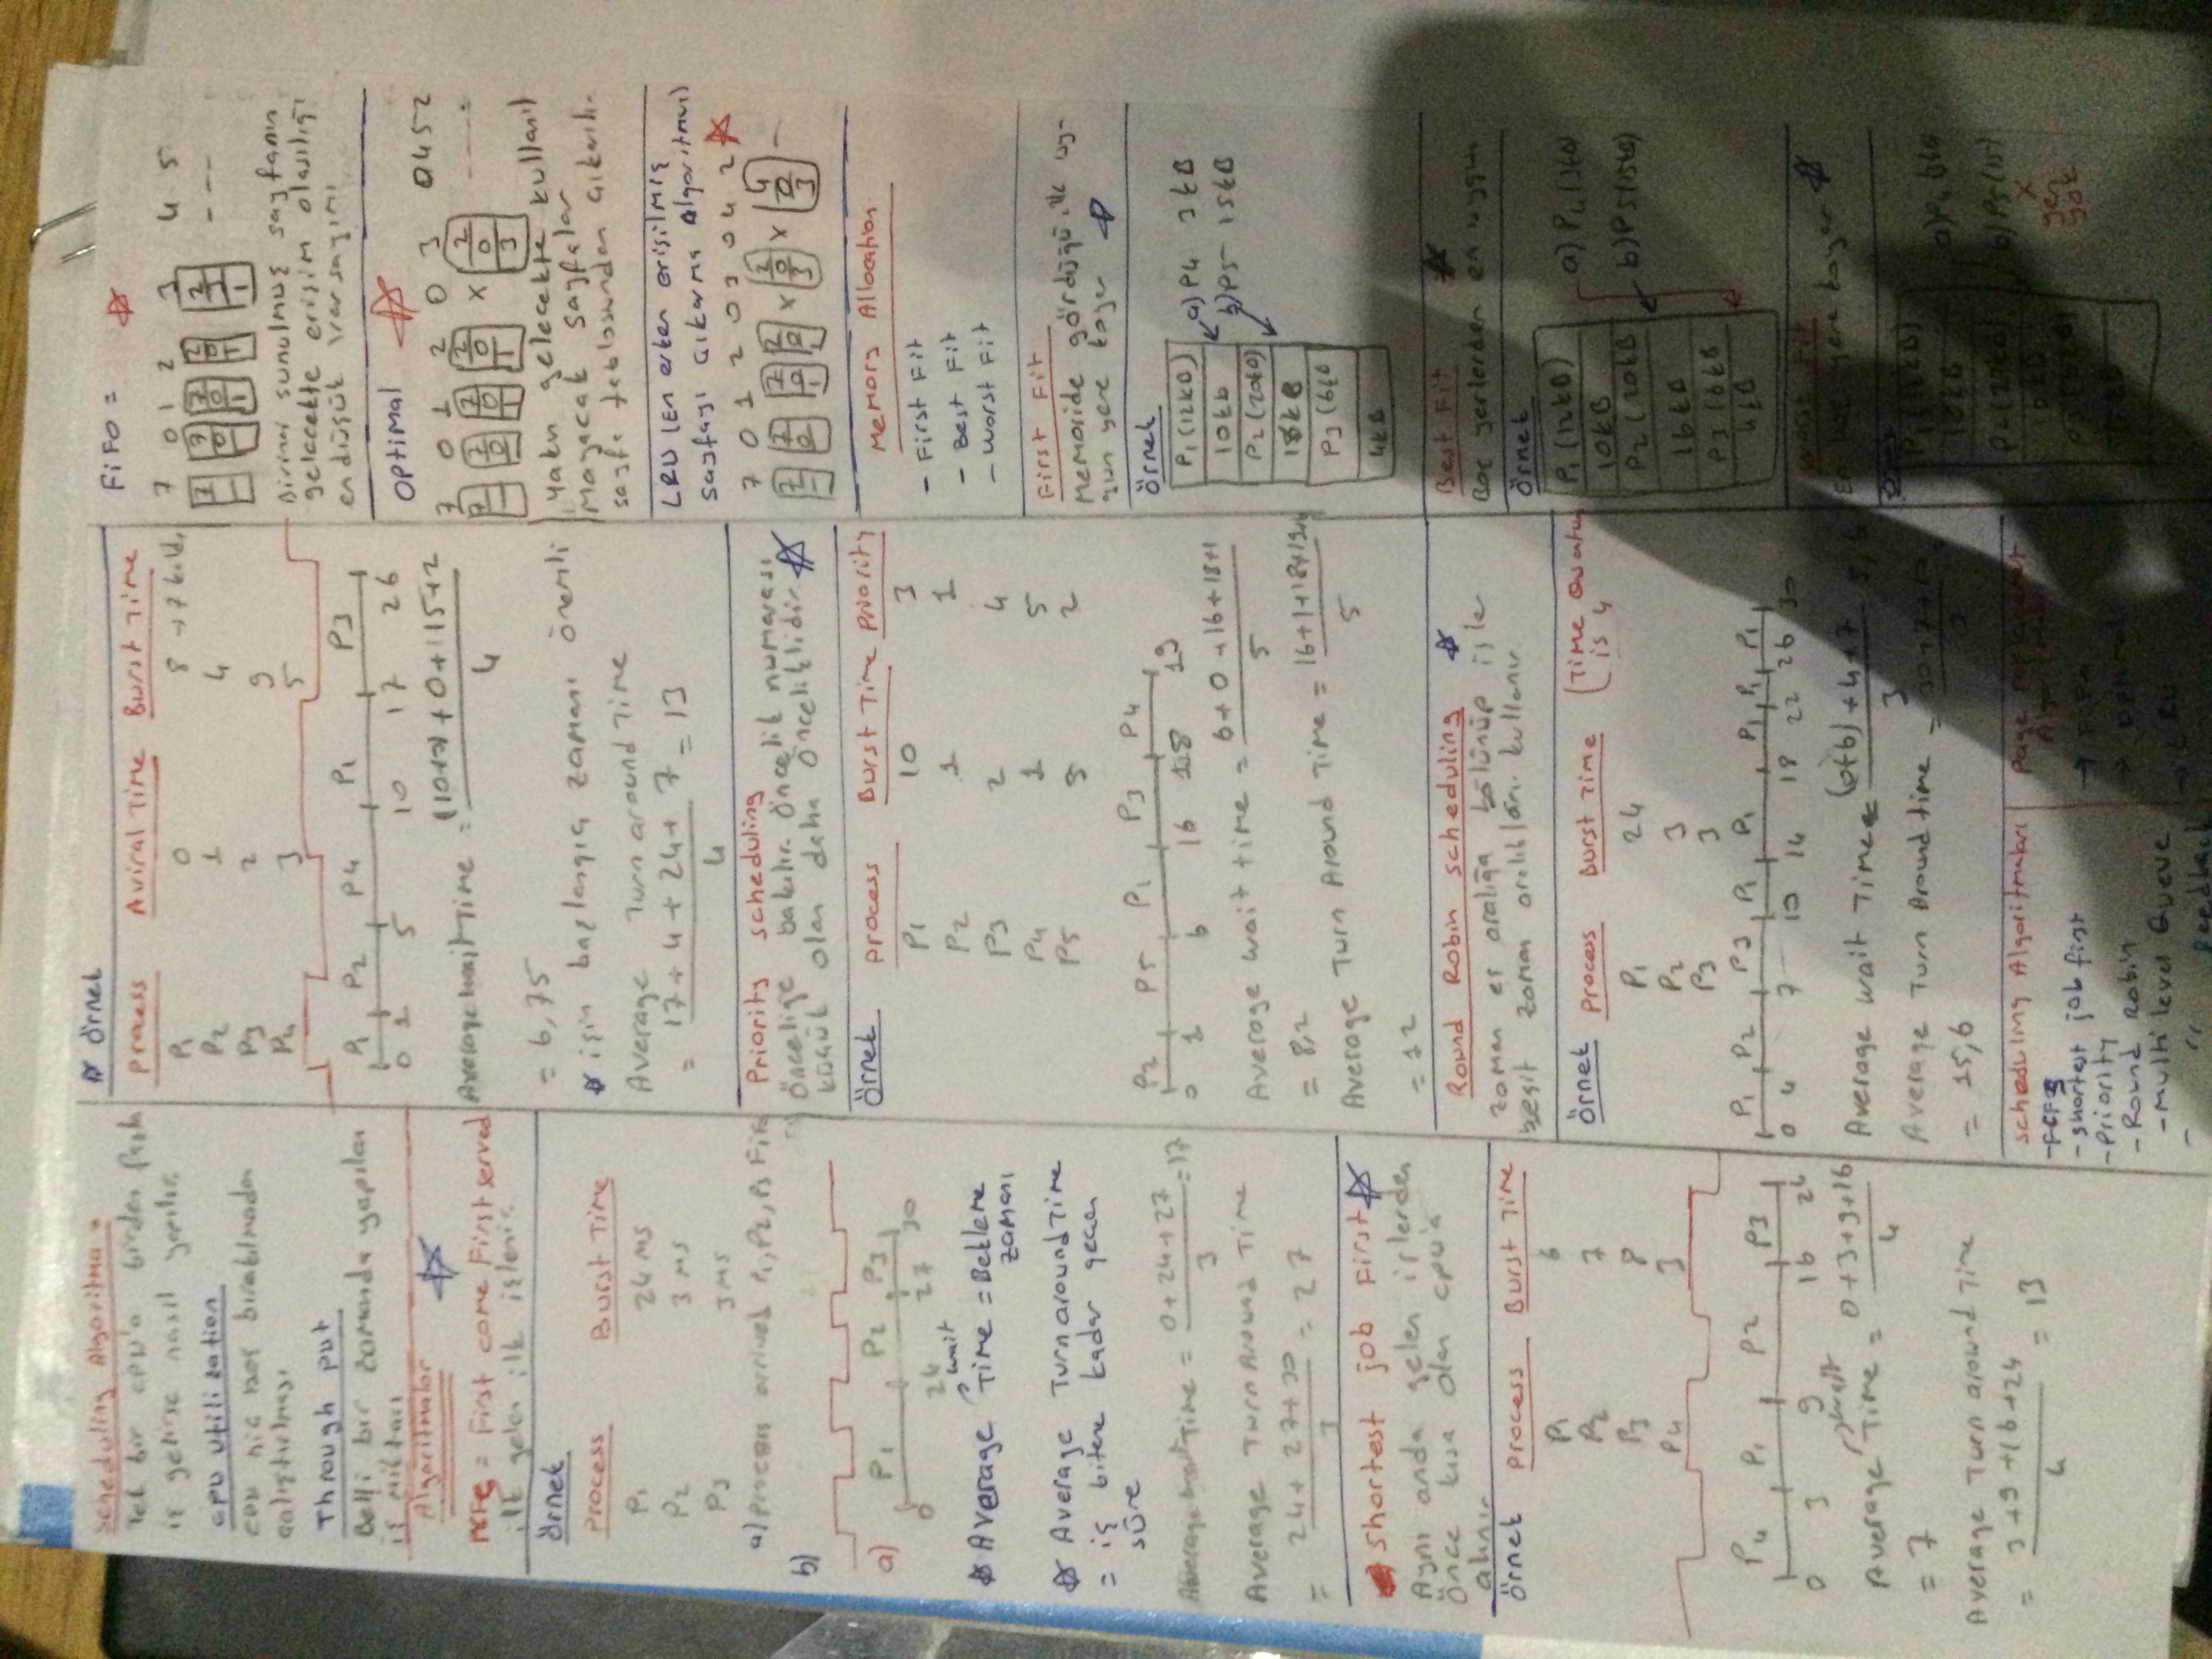 Scheduling Algoritma =
Tek bir cpu'a birden fazla
iş gelirse nasıl yapılır
CPU utilization
CPU hiç boş bırakılmadan
çalıştırılması
Through put
Belli bir zamanda yapılan
iş miktarı
Algoritmalar
FCFS = First come First served
ilk gelen ilk işlenir
örnek
Process Burst Time
P1 24 ms
P2 3 ms
P3 3 ms
a) process arrived P1, P2, P3
b)
a) P1 P2 P3
0 24 27 30
wait
Average Time = Bekleme
zamanı
Average Turn around Time
= iş bitene kadar geçen
süre
Average wait Time = 0+24+27 / 3 = 17
Average Turn Around Time
= 24+27+30 / 3 = 27
Shortest job First
Aynı anda gelen işlerden
önce kısa olan cpu'a
alınır
örnek Process Burst Time
P1 6
P2 7
P3 8
P4 3
P4 P1 P2 P3
0 3 9 16 24
wait
Average Time = 0+3+9+16 / 4
= 7
Average Turn around Time
= 3+9+16+24 / 4 = 13
örnek
Process Aviral Time Burst Time
P1 0 8 → 7 kaldı
P2 1 4
P3 2 9
P4 3 5
P1 P2 P4 P1 P3
0 1 5 10 17 26
Average wait Time = + 0 + 15+2 / 4
= 6,75
işin başlangıç zamanı önemli
Average Turn around Time
= 17+4+24+7 / 4 = 13
Priority scheduling
önceliğe bakılır. öncelik numarası
küçük olan daha önceliklidir
örnek Process Burst Time Priority
P1 10 3
P2 1 1
P3 2 4
P4 1 5
P5 5 2
P2 P5 P1 P3 P4
0 1 6 16 18 19
Average wait time = 6+0+16+18+1 / 5
= 8,2
Average Turn Around Time = 16+1+18+19+6 / 5
= 12
Round Robin scheduling
zaman eş aralığa bölünüp işler
eşit zaman aralıkları kullanır
örnek Process Burst Time (Time Quantum
is 4
P1 24
P2 3
P3 3
P1 P2 P3 P1 P1 P1 P1 P1
0 4 7 10 14 18 22 26 30
Average wait Time = (0+6)+4+7 / 3
Average Turn Around time = 30+7+10 / 3
= 15,6
Scheduling Algoritmaları
-FCFS
-shortest job first
-Priority
-Round Robin
-Multi level Queue
- " feedback
Page Replacement
→ FIFO
→ optimal
→ LRU
FiFO =
7 0 1 2 3 4 5
7 7 0 7 0 1 2 0 1 2 3 1 ---
Birinci sunulmuş sayfanın
gelecekte erişim olasılığı
en düşük varsayımı
Optimal
7 0 1 2 0 3 0452
7 7 0 7 0 1 2 0 1 x 2 0 3 ----
yakın gelecekte kullanıl
mayacak sayfalar
sayfa tablosundan çıkarılır.
LRU (En erken erişilmiş
sayfayı çıkarma Algoritması)
7 0 1 2 0 3 0 4 2
7 7 0 7 0 1 2 0 1 x 2 0 3 x 4 0 3 -
Memory Allocation
- First Fit
- Best Fit
- Worst Fit
First Fit
Memoride gördüğü ilk uy-
gun yere koyar
örnek
P1 (12kB) a) P4 3 kB
10kb b) P5 15kB
P2 (20kB)
P3 (6kB
4kB
Best Fit
Boş yerlerden en uygun
örnek
P1 (12kB) a) P4 (3kB)
10kB
P2 (20kB b) P5 (15kB)
16kB
P3 (6kB
4kB
Worst Fit
En boş yere koyar
b) P5 (15)
x
yer
yok